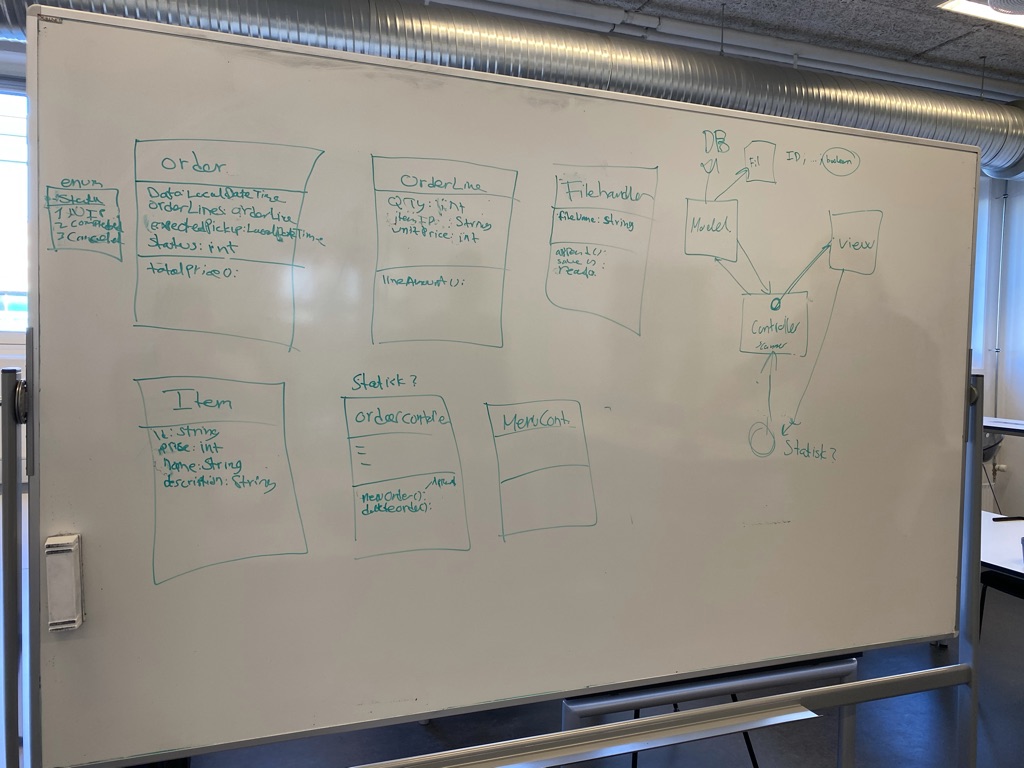 enum
Status
1 WIP
2 Completed
3 Canceled
Order
Data: LocalDateTime
orderLines: orderLine
expectedPickup: LocalDateTime
Status: int
totalPrice():
OrderLine
QTY: int
itemID: String
unitPrice: int
lineAmount():
Filehandler
fileName: String
append():
save():
read
DB
Fil
ID, ... boolean
Model
View
Controller
Scanner
Statisk?
Item
Id: String
price: int
Name: String
description: String
Statisk?
OrderControlle
newOrder():
deleteorder():
MenuCont.